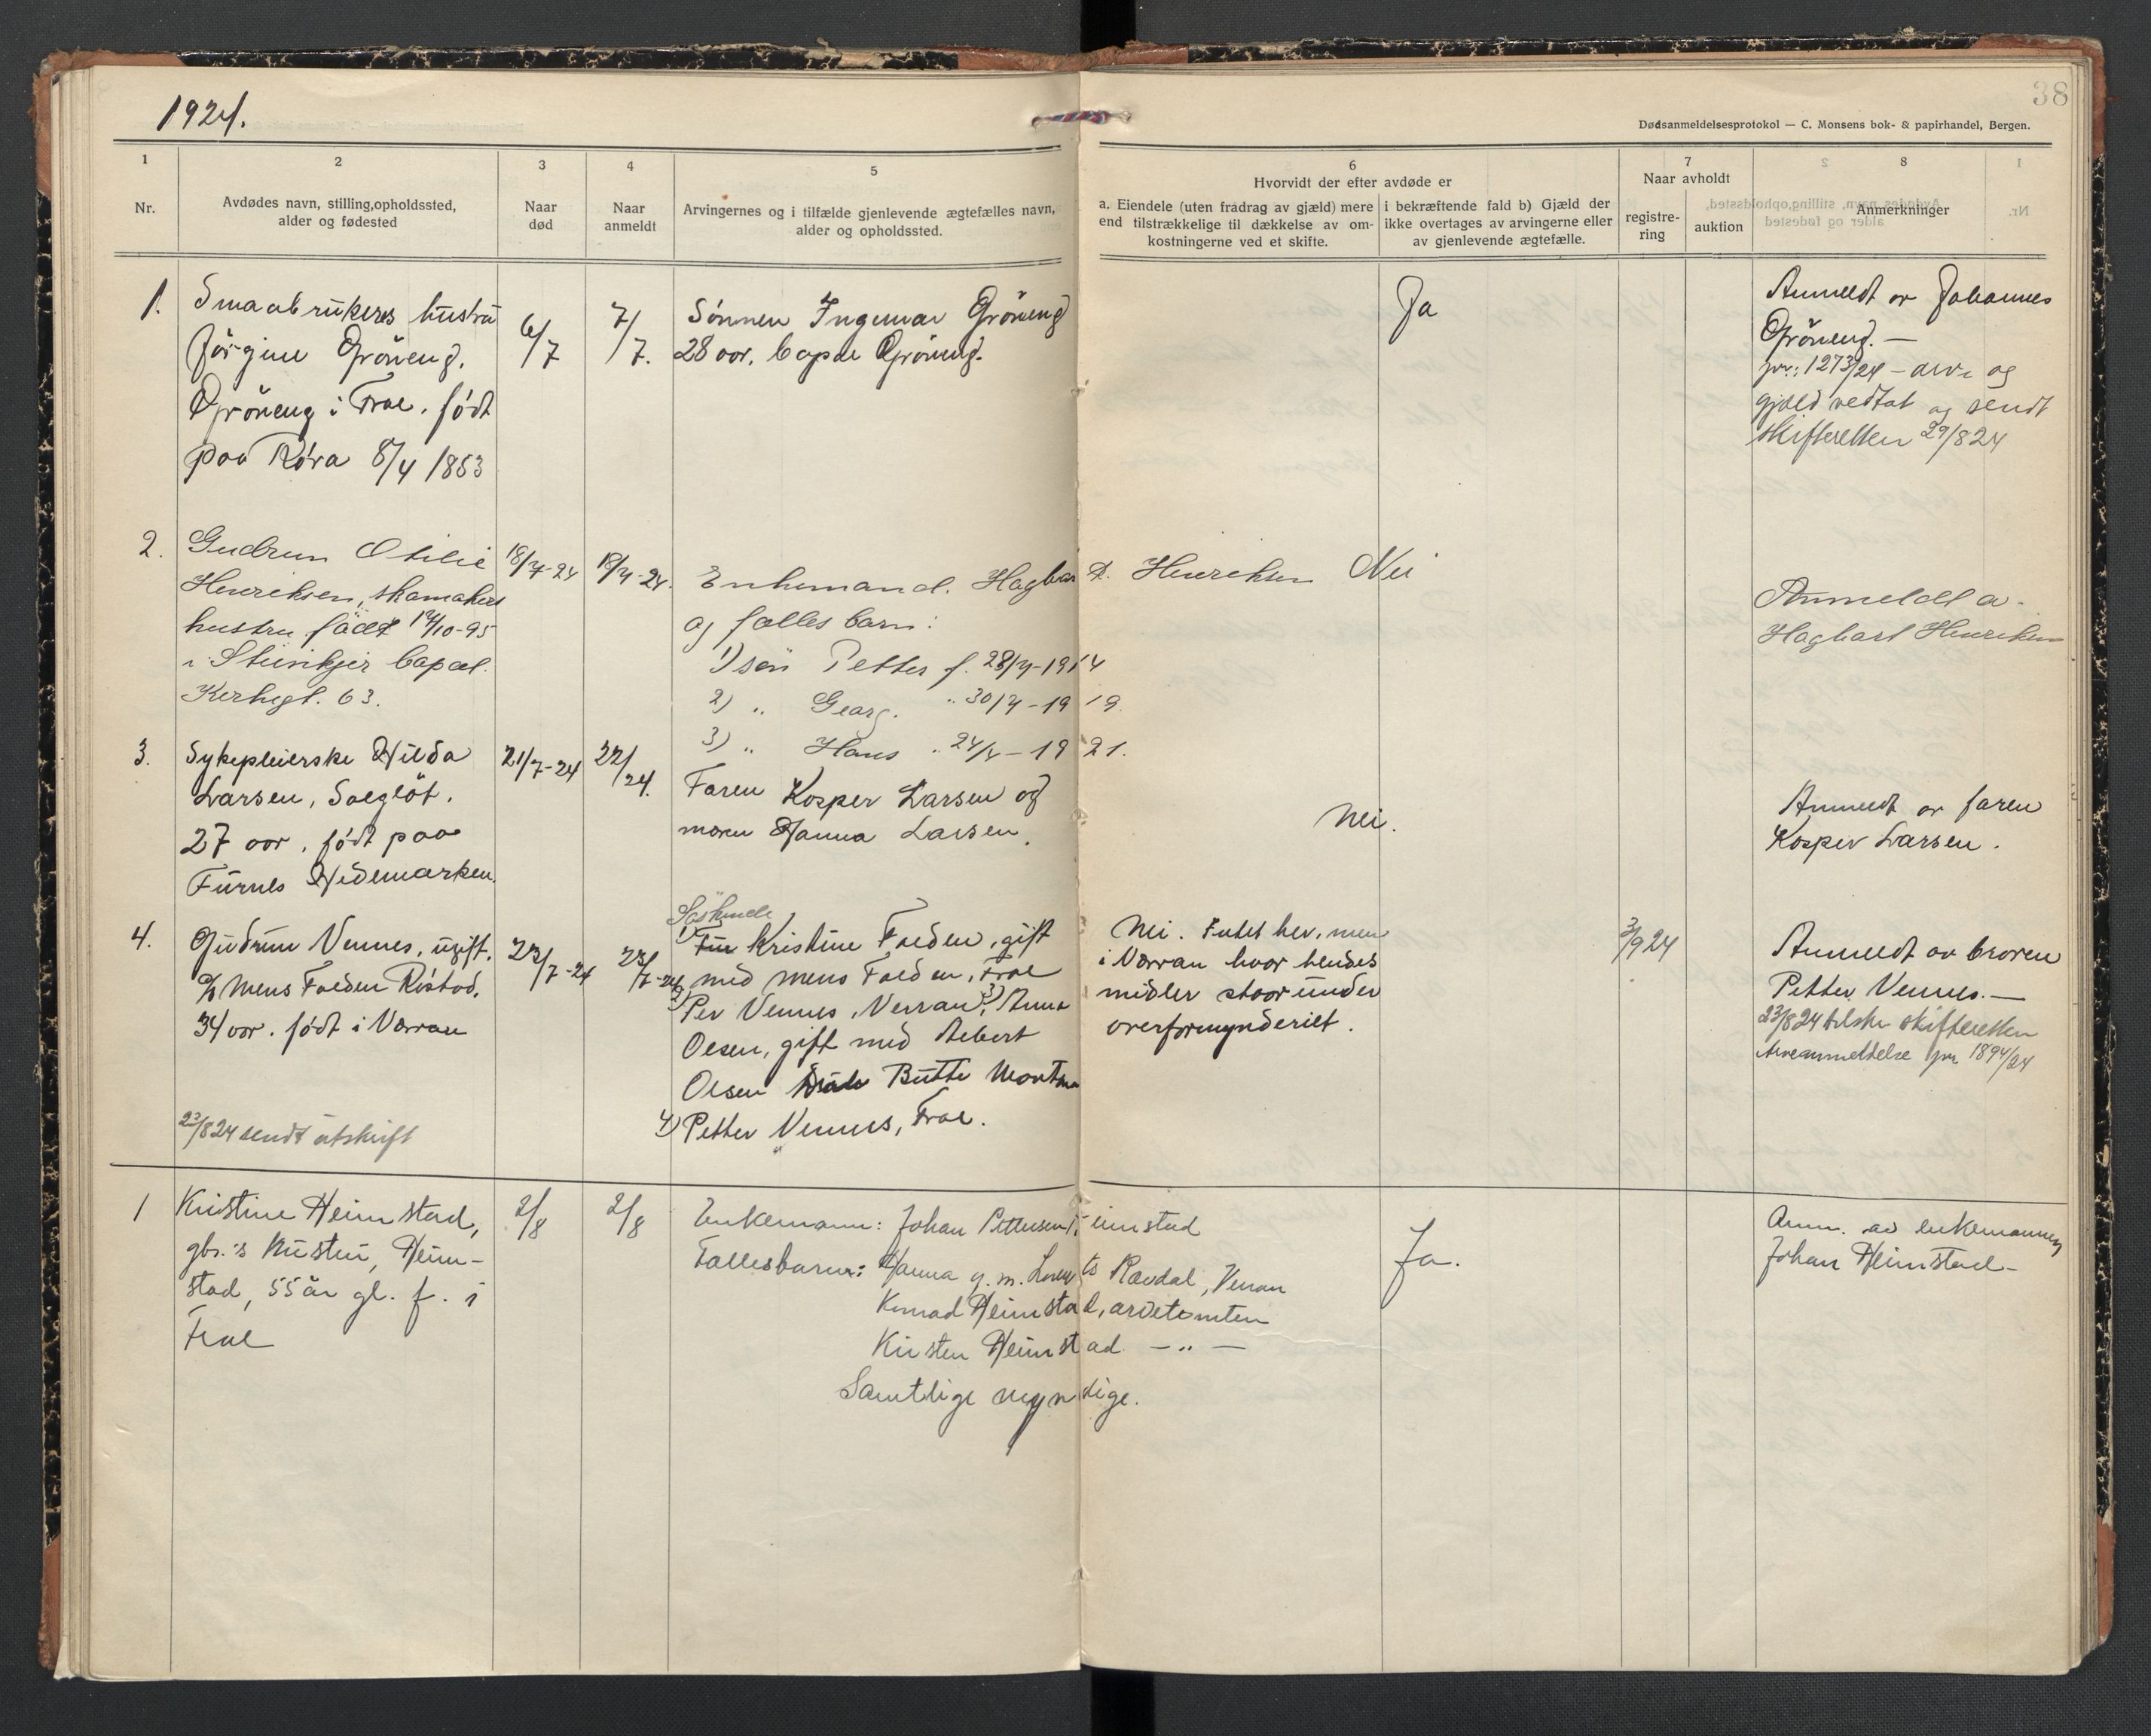 1924.
38
Dødsanmeldelsesprotokol — C. Monsens bok- & papirhandel, Bergen.
1
Nr.
2
Avdødes navn, stilling, opholdssted,
alder og fødested
3
Naar
død
4
Naar
anmeldt
5
Arvingernes og i tilfælde gjenlevende ægtefælles navn,
alder og opholdssted.
6
Hvorvidt der efter avdøde er
a. Eiendele (uten fradrag av gjæld) mere
end tilstrækkelige til dækkelse av om-
kostningerne ved et skifte.
i bekræftende fald b) Gjæld der
ikke overtages av arvingerne eller
av gjenlevende ægtefælle.
7
Naar avholdt
registre-
ring
auktion
8
Anmerkninger
1.
Smaabrukers hustru
Jørgine Grøneng.
Grøneng i Frol. født
paa Røra 8/4 1853
6/7
7/7.
Sønnen Ingemar Grøneng
28 aar. Grøneng.
Ja
Anmeldt av Johannes
Grøneng. —
jnr: 1273/24 – arv og
gjæld vedtat og sendt
skifteretten 29/8 24
2.
Gudrun Otilie
Henriksen, skomakers
hustru født 14/10-95
i Steinkjer
Kirkegt. 63.
18/7-24
18/7-24.
Enkemand. Hagbar D. Henriksen
og fælles barn:
1) søn Petter f. 28/7-1914
2) „ Georg. „ 30/7-1919.
3) „ Hans „ 24/4-1921.
Nei
Anmeldt a.
Hagbart Henriksen
3.
Sykepleierske Hilda
Larsen, Solgløt.
27 aar, født paa
Furnes Hedemarken.
21/7-24
22/24.
Faren Kosper Larsen og
moren Hanna Larsen.
Nei.
Anmeldt av faren
Kosper Larsen.
4.
Gudrun Vennes, ugift.
c/o Mens Folden Røstad.
34 aar. født i Værran
23/8 24 sendt utskrift
23/7-24
23/7-24
Søskende
1) Fru Kristine Folden, gift
med Mens Folden, Frol
2) Per Vennes, Verran, 3) Anna
Olsen, gift med Albert
Olsen Butte Montana
4) Petter Vennes, Frol.
Nei. Intet her, men
i Værran hvor hendes
midler staar under
overformynderiet.
3/9 24
Anmeldt av broren
Petter Vennes. —
23/8 24 skifteretten
Arveanmeldelse jnr 1894/24
1
Kristine Heimstad,
gbr.'s hustru, Heim-
stad, 55 år gl. f. i
Frol
2/8
2/8
Enkemann: Johan Pettersen Heimstad
Fællesbarn: Hanna g. m. Lorents Ravdal, Verran
Konrad Heimstad, arvetomten
Kirsten Heimstad — „ —
Samtlige myndige.
Ja.
Anm. av enkemannen
Johan Heimstad –